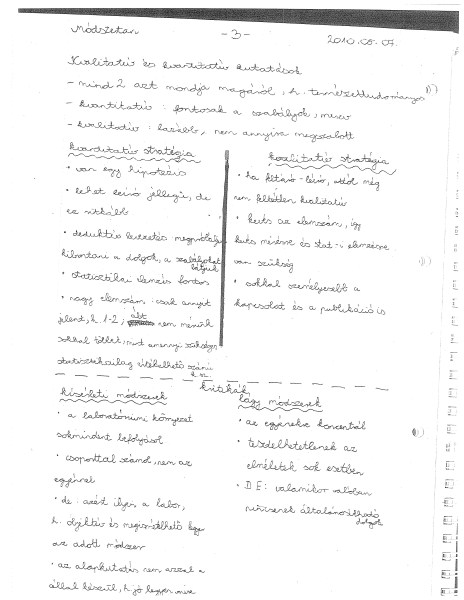 Módszertan
- 3 -
2010.05.07.
Kvalitatív és kvantitatív kutatások
- mind 2 azt mondja magáról, h. természettudományos
- kvantitatív : fontosak a szabályok, merev
- kvalitatív : lazább, nem annyira megszabott
kvantitatív stratégia
• van egy hipotézis
• lehet leíró jellegű, de
ez ritkább
• deduktív levezetés: megpróbálja
kibontani a dolgot, a szabályokat
látjuk
• statisztikai elemzés fontos
• nagy elemszám: csak annyit
jelent, h. 1-2 ; ált. nem mérünk
sokkal többet, mint amennyi szükséges
statisztikailag értékelhető
kvalitatív stratégia
• ha feltáró-leíró, attól még
nem feltétlen kvalitatív
• kicsi az elemszám, így
kicsi mérésre és stat-i elemzésre
van szükség
• sokkal személyesebb a
kapcsolat és a publikáció is
kritikák
kísérleti módszerek
• a laboratóriumi környezet
sokmindent lefolyásol
• csoporttal számol, nem az
egyénnel
• de: azért ilyen a labor,
h. objektív és megismételhető legyen
az adott módszer
• az alapkutatás nem azzal a
céllal készül, h. jó legyen
lágy módszerek
• az egyénekre koncentrál
• tesztelhetetlenek az
elméletek sok esetben
• DE: valamikor valóban
nincsenek általánosítható
dolgok